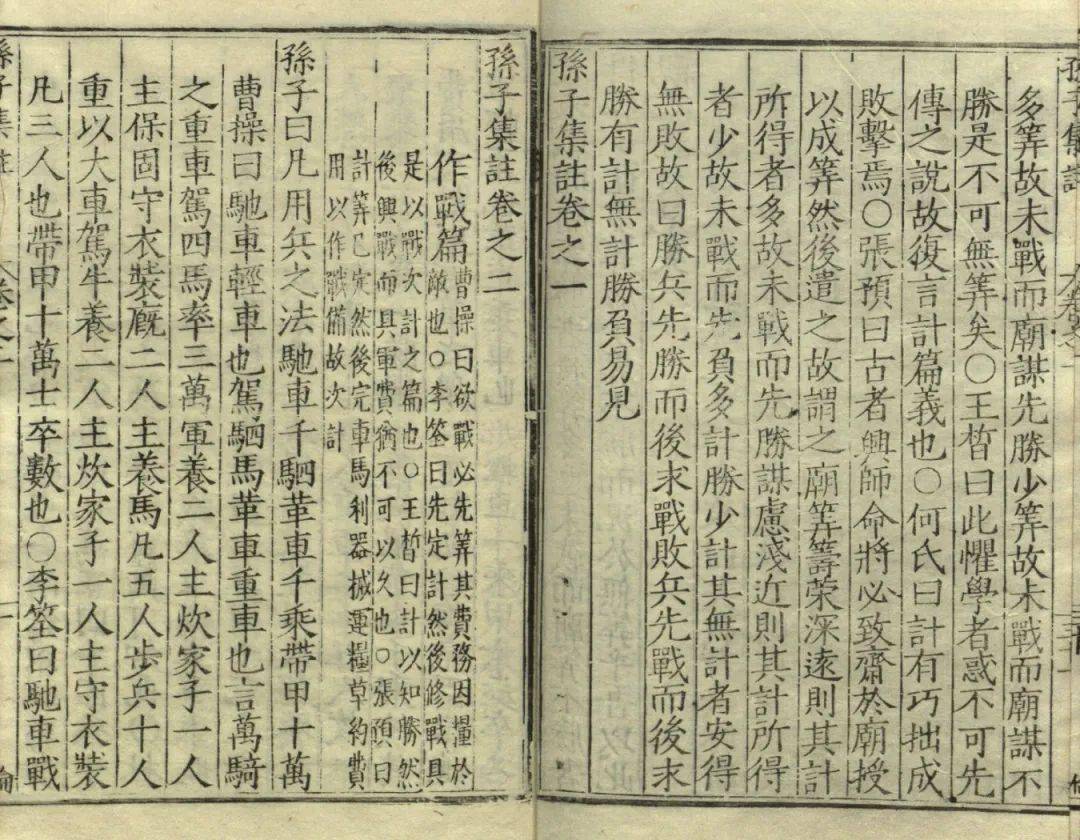 孫子集註
多筭故未戰而廟謀先勝少筭故未戰而廟謀不
勝是不可無筭矣○王晳曰此懼學者惑不可先
傳之說故復言計篇義也○何氏曰計有巧拙成
敗擊焉○張預曰古者興師命將必致齋於廟授
以成筭然後遣之故謂之廟筭籌榮深遠則其計
所得者多故未戰而先勝謀慮淺近則其計所得
者少故未戰而先負多計勝少計其無計者安得
無敗故曰勝兵先勝而後求戰敗兵先戰而後求
勝有計無計勝負易見
孫子集註卷之一
孫子集註卷之二
作戰篇
曹操曰欲戰必先筭其費務因糧於
敵也○李筌曰先定計然後修戰具
是以戰次計之篇也○王晳曰計以知勝然
後興戰而具軍費猶不可以久也○張預曰
計筭已定然後完車馬利器械運糧草約費
用以作戰備故次計
孫子曰凡用兵之法馳車千駟革車千乘帶甲十萬
曹操曰馳車輕車也駕駟馬革車重車也言萬騎
之重車駕四馬率三萬軍養二人主炊家子一人
主保固守衣裝廐二人主養馬凡五人步兵十人
重以大車駕牛養二人主炊家子一人主守衣裝
凡三人也帶甲十萬士卒數也○李筌曰馳車戰
孫子集註